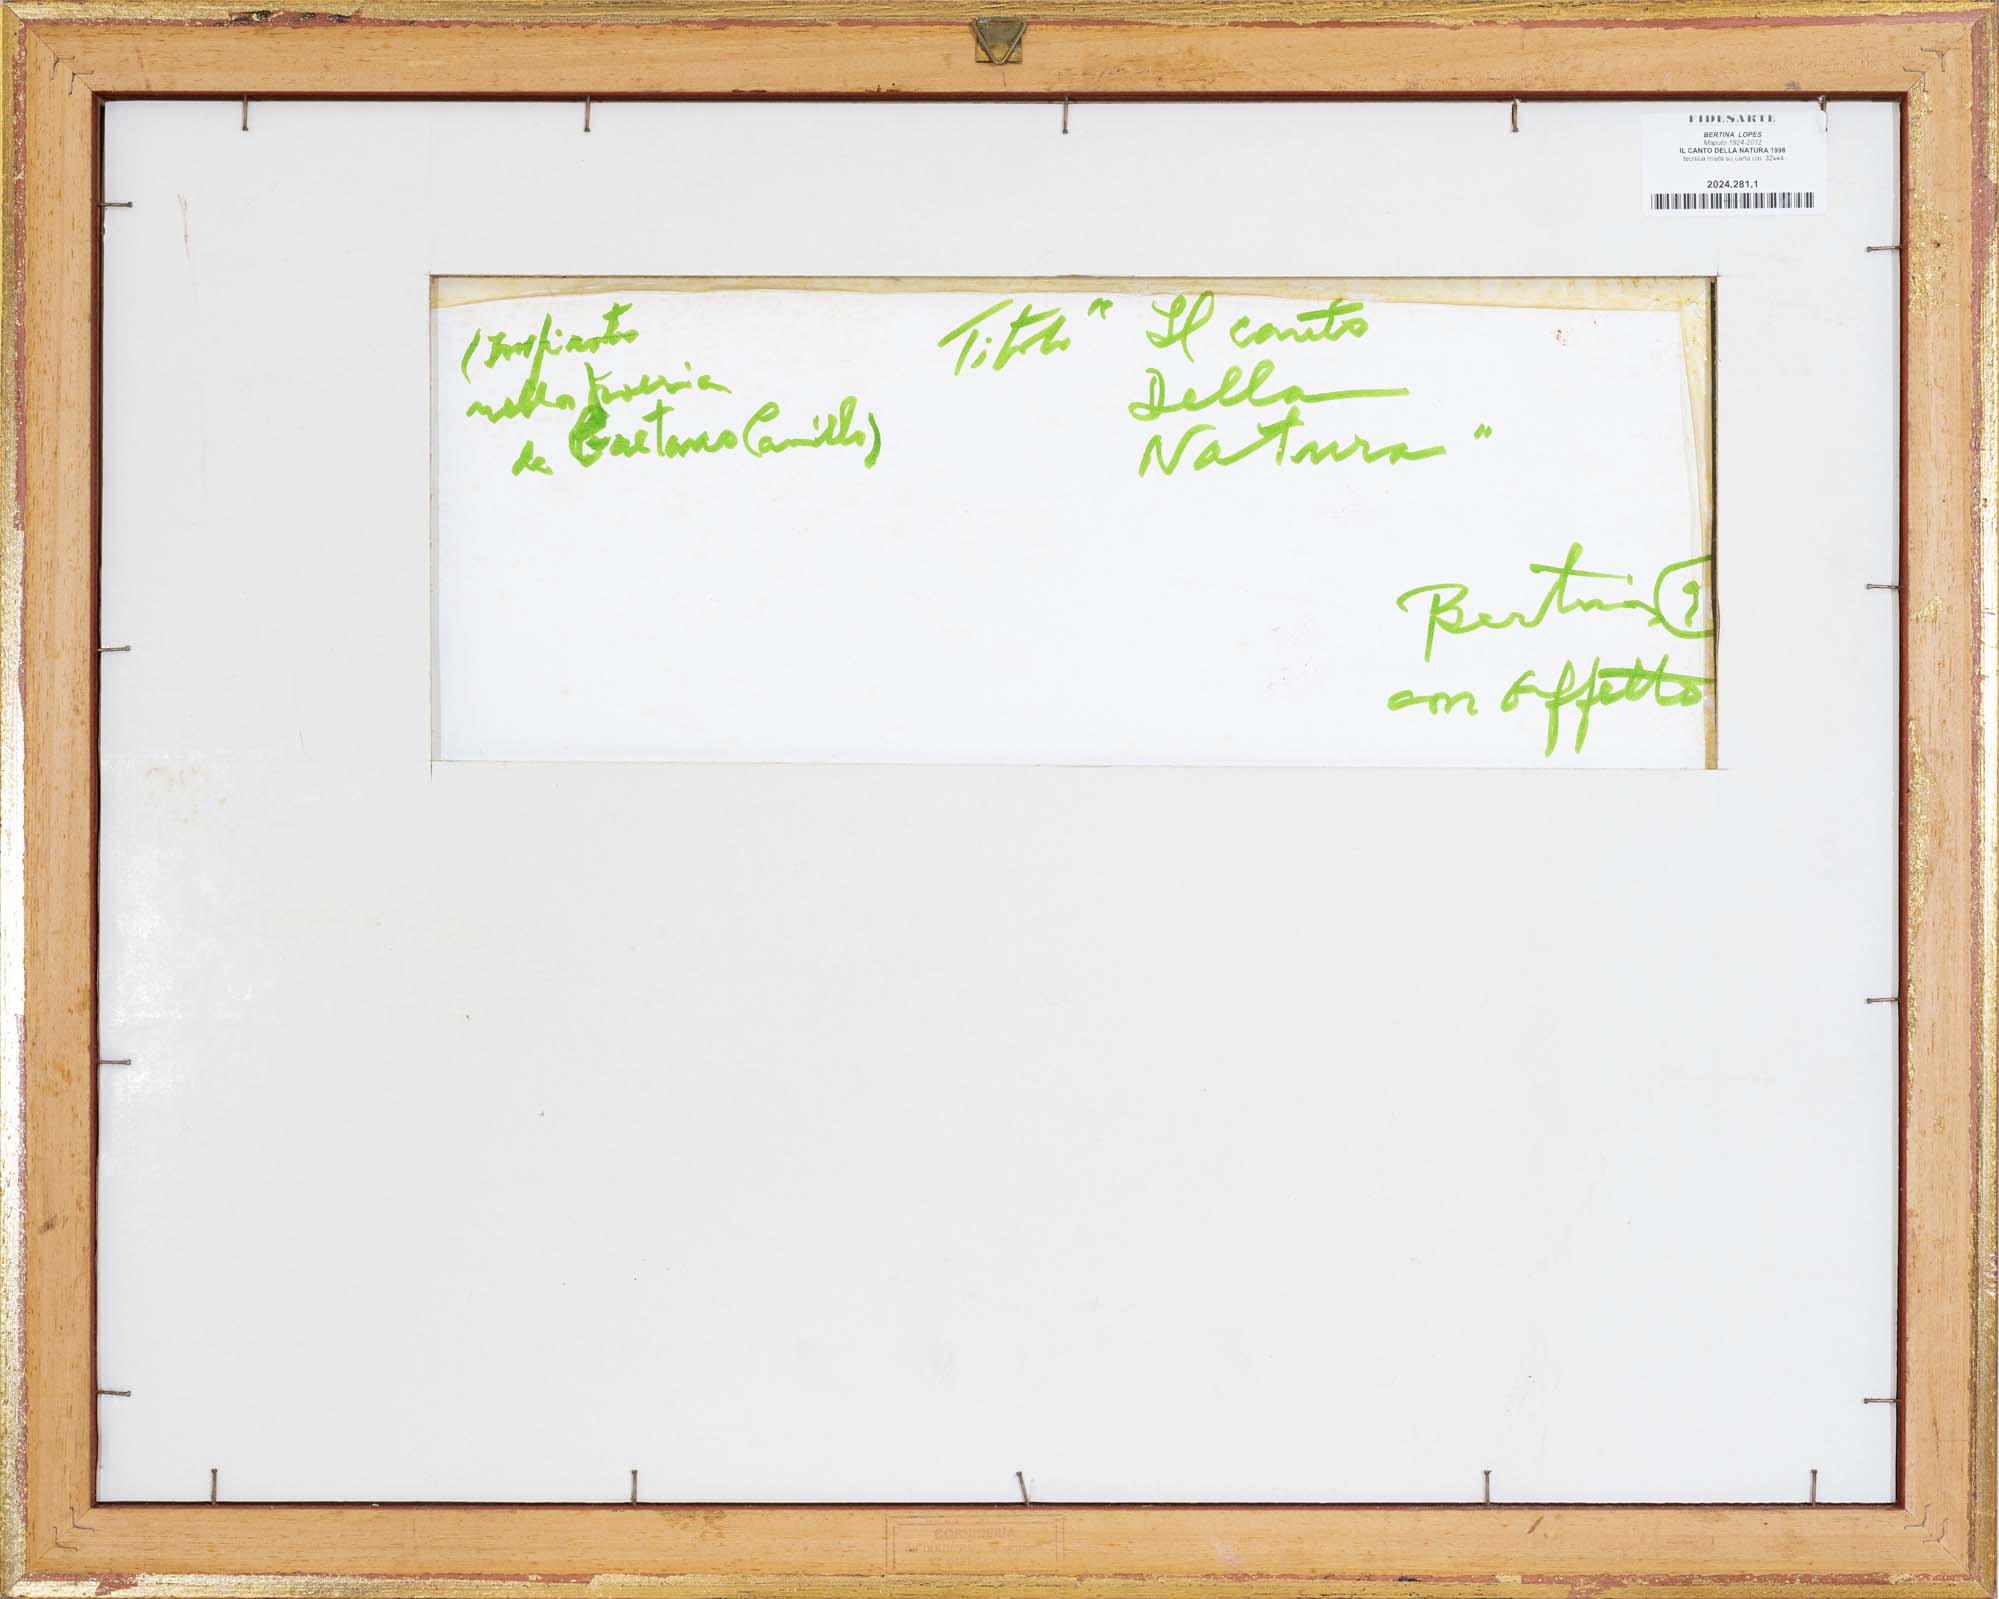 FIDESARTE
BERTINA LOPES
Maputo 1924-2012
IL CANTO DELLA NATURA 1998
tecnica mista su carta cm. 32x44
2024.281.1
(Inspirato
nella Poesia
de Gaetano Camillo)
Titolo " Il canto
Della
Natura "
Bertina 9
con affetto
CORNICERIA